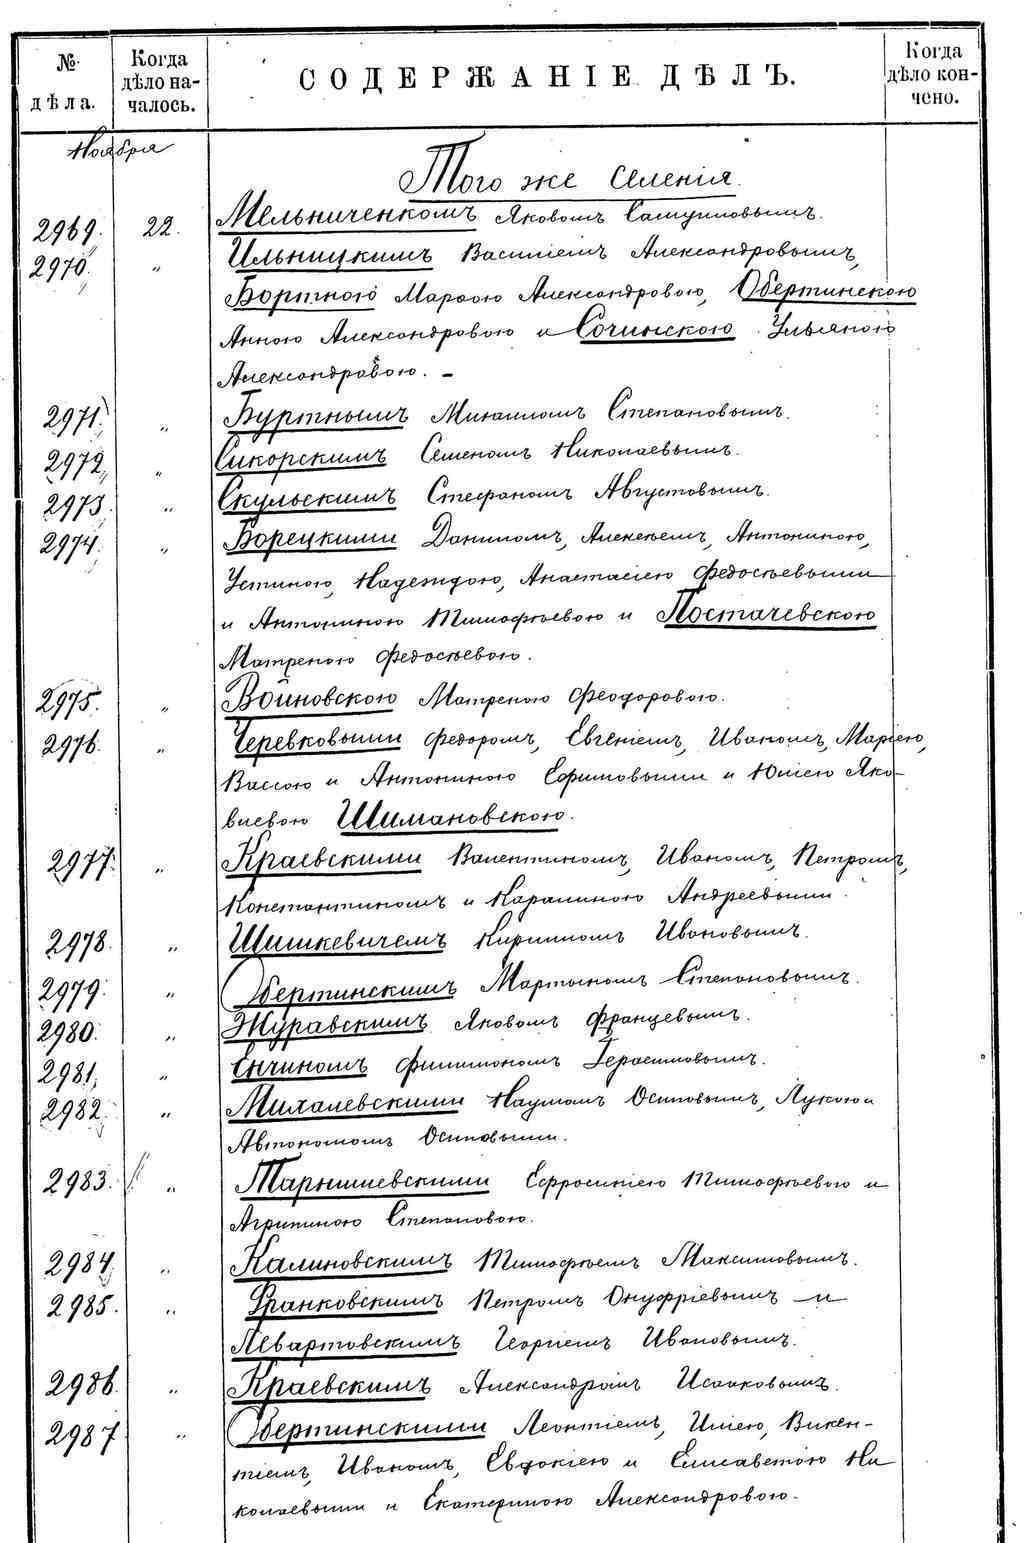 № дѣла.
Когда дѣло началось.
СОДЕРЖАНІЕ ДѢЛЪ.
Когда дѣло кончено.
Ноября
Того же селенія.
2969. 22. Мельниченкомъ Яковомъ Самуиловымъ.
2970. " Ильницкимъ Василіемъ Александровымъ,
Бортною Марѳою Александровою, Обертинскою
Анною Александровою и Сочинскою Ульяною
Александровою. –
2971. " Буртнымъ Михаиломъ Степановымъ.
2972. " Сикорскимъ Семеномъ Николаевымъ.
2973. " Скульскимъ Стефаномъ Августовымъ.
2974. " Борецкими Даниломъ, Алексѣемъ, Антониною,
Устиною, Надеждою, Анастасіею Федосѣевыми
и Антониною Тимофѣевою и Постачевскою
Матреною Федосѣевою.
2975. " Войновскою Матреною Феодоровою.
2976. " Черевковыми Федоромъ, Евгеніемъ, Иваномъ, Маріею,
Вассою и Антониною Ефимовыми и Юліею Яко-
влевою Шимановскою.
2977. " Краевскими Валентиномъ, Иваномъ, Петромъ,
Константиномъ и Каролиною Андреевыми.
2978. " Шишкевичемъ Кириломъ Ивановымъ.
2979. " Обертинскимъ Мартыномъ Степановымъ.
2980. " Журавскимъ Яковомъ Францевымъ.
2981. " Енчиномъ Филимономъ Герасимовымъ.
2982. " Михалевскими Наумомъ Осиповымъ, Лукою и
Автономомъ Осиповыми.
2983. " Тарнышевскими Ефросиніею Тимофѣевою и
Агрипиною Степановою.
2984. " Калиновскимъ Тимофѣемъ Максимовымъ.
2985. " Франковскимъ Петромъ Онуфріевымъ и
Левартовскимъ Георгіемъ Ивановымъ.
2986. " Краевскимъ Александромъ Исааковымъ.
2987 " Обертинскими Леонтіемъ, Иліею, Викен-
тіемъ, Иваномъ, Евдокіею и Елисаветою Ни
колаевыми и Екатериною Александровою.